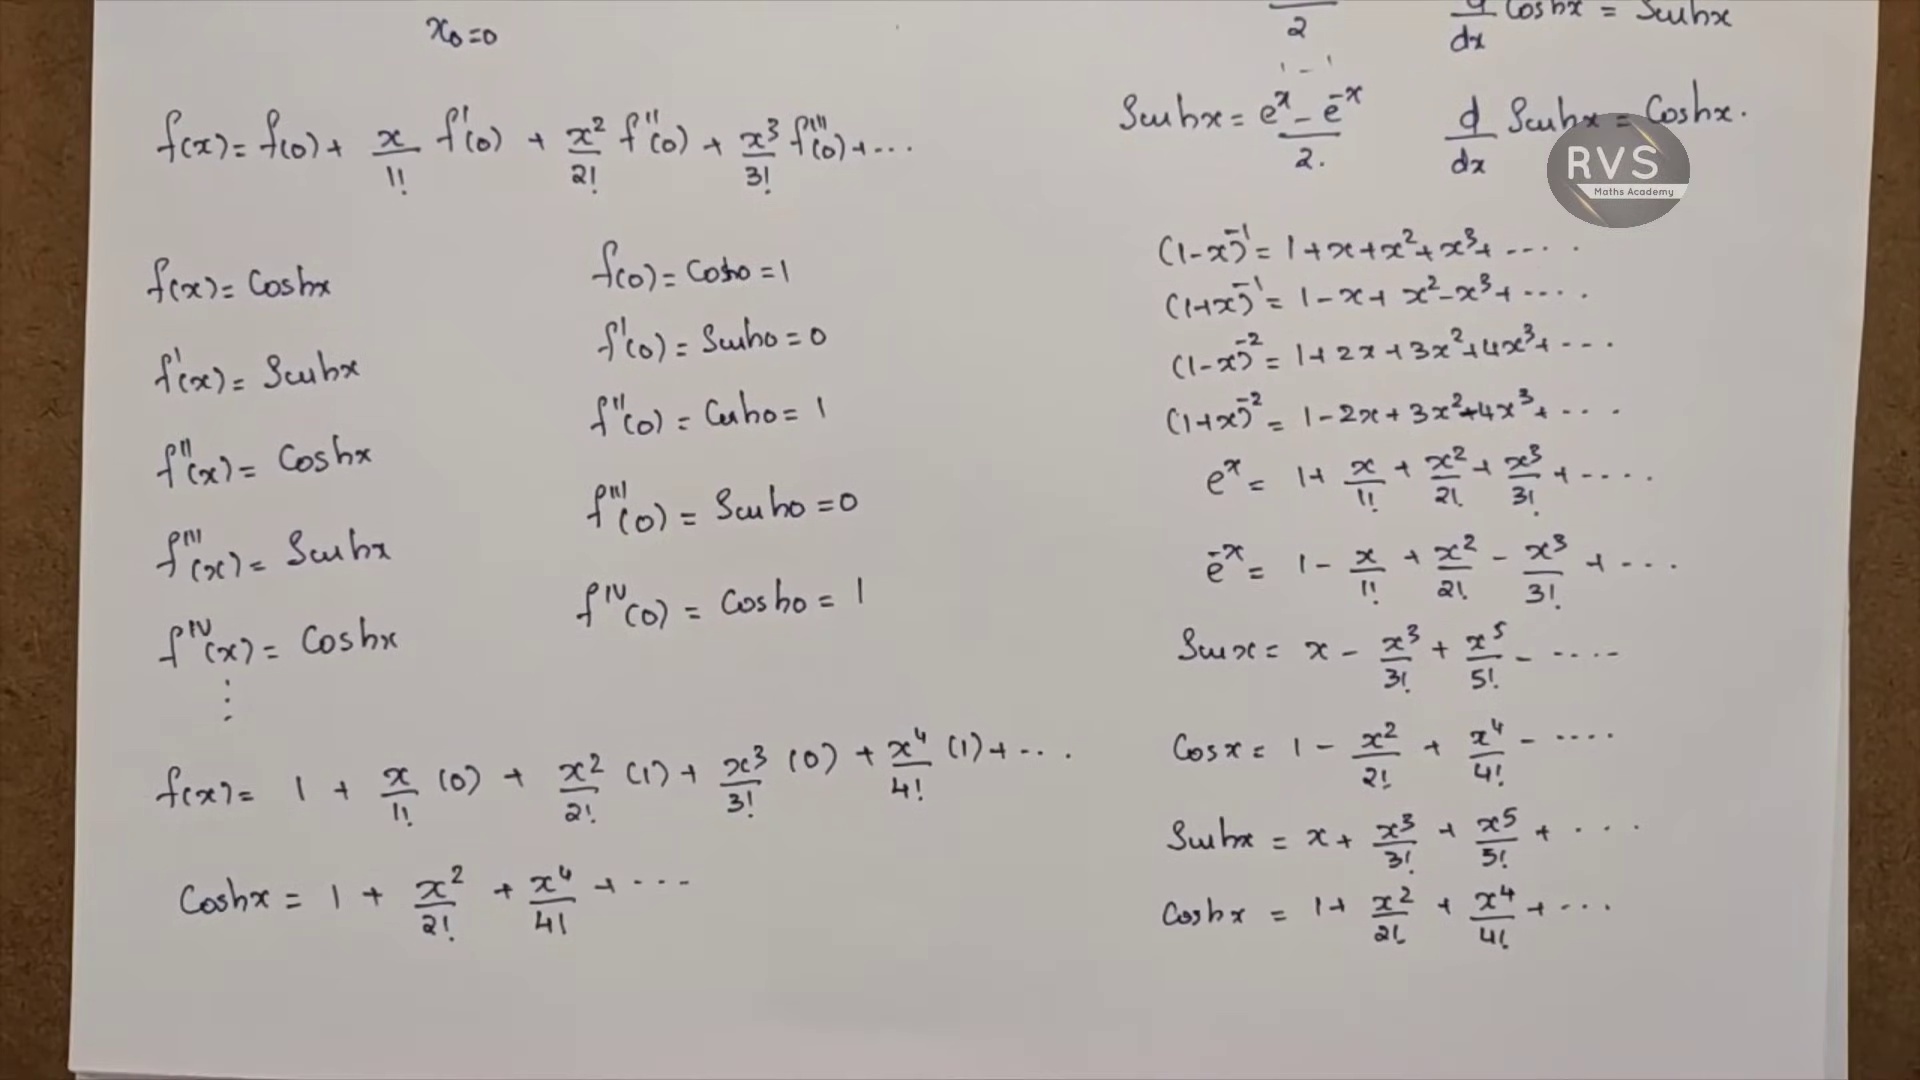 x₀=0
f(x)= f(0)+ x/1! f'(0) + x²/2! f''(0) + x³/3! f'''(0)+...
f(x)= Coshx
f(0)= Cosh0 =1
f'(x)= Sinhx
f'(0) = Sinh0 = 0
f''(x)= Coshx
f''(0) = Cosh0 = 1
f'''(x)= Sinhx
f'''(0) = Sinh0 =0
f^IV(x)= Coshx
f^IV(0) = Cosh0 = 1
⋮
f(x)= 1 + x/1! (0) + x²/2! (1) + x³/3! (0) + x⁴/4! (1)+ ...
Coshx = 1 + x²/2! + x⁴/4! + ...
2
d/dx Coshx = Sinhx
Sinhx = (e^x - e^-x)/2.
d/dx Sinhx = Coshx.
RVS
Maths Academy
(1-x)^-1 = 1+x+x²+x³+ ....
(1+x)^-1 = 1-x+x²-x³+ ....
(1-x)^-2 = 1+2x+3x²+4x³+ ...
(1+x)^-2 = 1-2x+3x²-4x³+ ...
e^x = 1+ x/1! + x²/2! + x³/3! + ....
e^-x = 1- x/1! + x²/2! - x³/3! + ...
Sinx = x - x³/3! + x⁵/5! - ....
Cosx = 1 - x²/2! + x⁴/4! - ....
Sinhx = x + x³/3! + x⁵/5! + ...
Coshx = 1+ x²/2! + x⁴/4! + ...